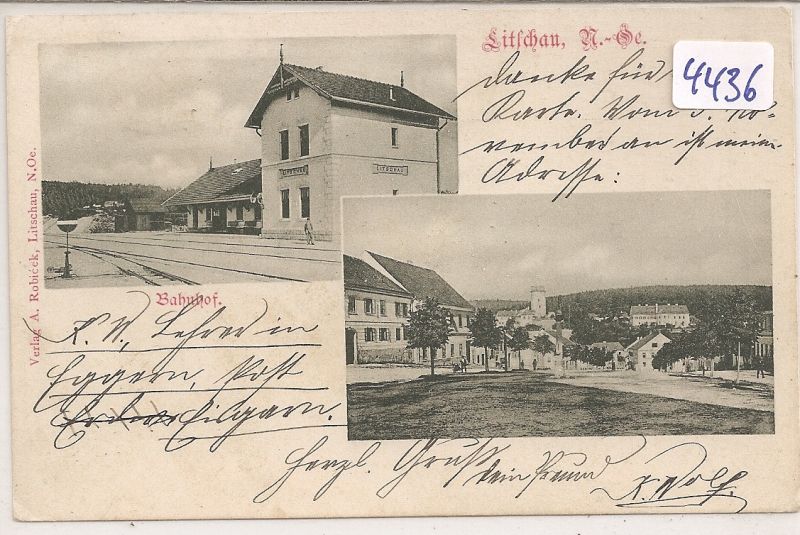 Litschau, N.-Oe.
4436
Danke für
Karte. Vom 5. No-
vember an ist meine
Adresse:
LITSCHAU
LITSCHAU
Verlag A. Robiček, Litschau, N.Oe.
Bahnhof.
K. W., Lehrer in
Eggern, Post
Eisgarn.
Herzl. Gruß
dein Freund
K. Wolf.